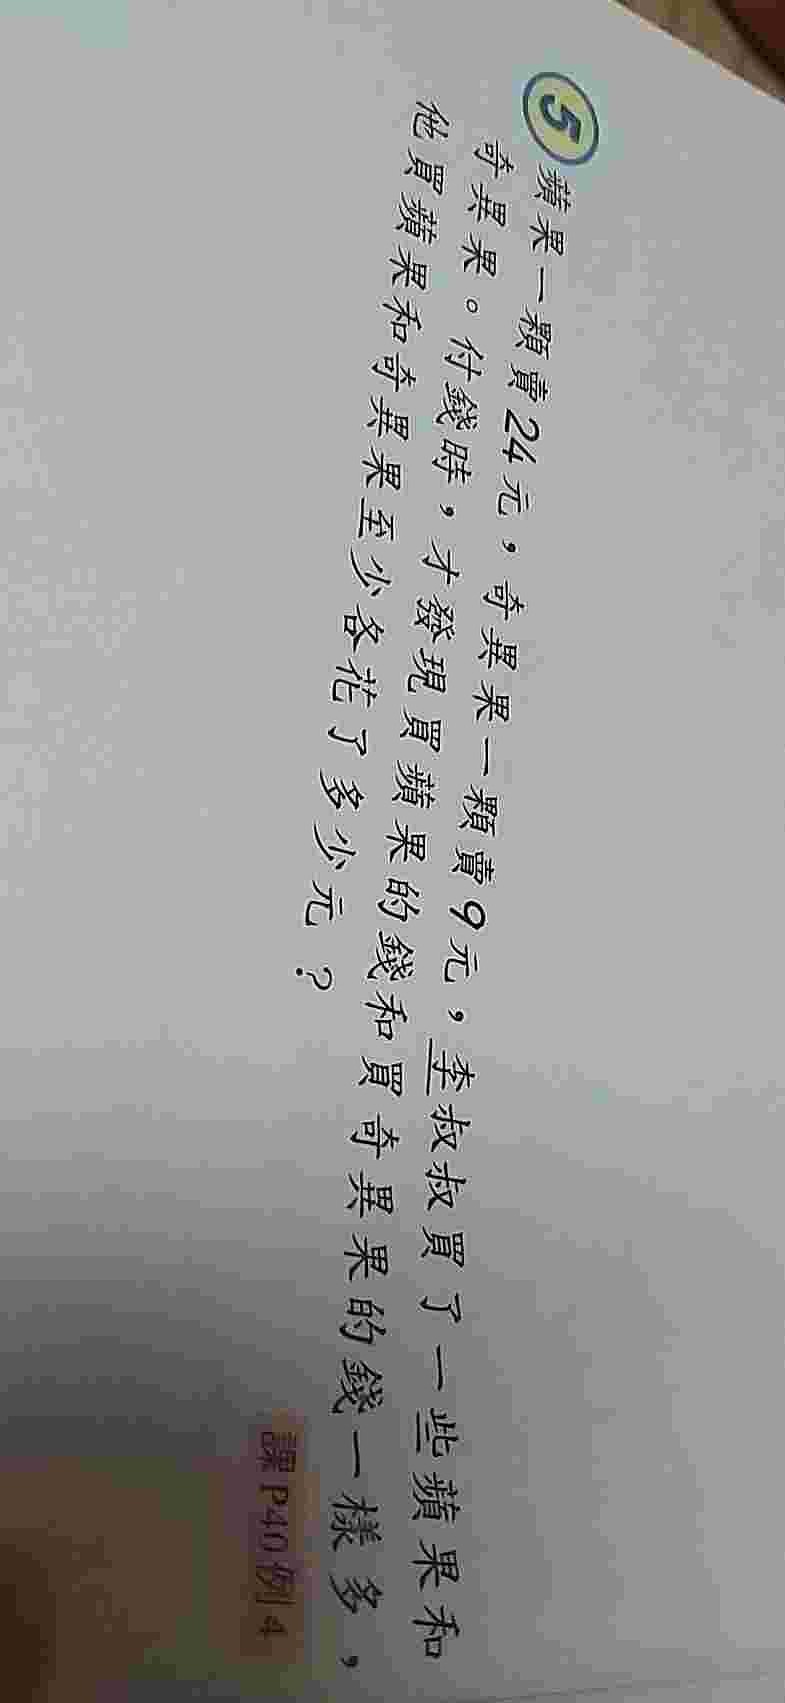 5 蘋果一顆賣24元，奇異果一顆賣9元，李叔叔買了一些蘋果和
奇異果。付錢時，才發現買蘋果的錢和買奇異果的錢一樣多，
他買蘋果和奇異果至少各花了多少元？
課P40例4